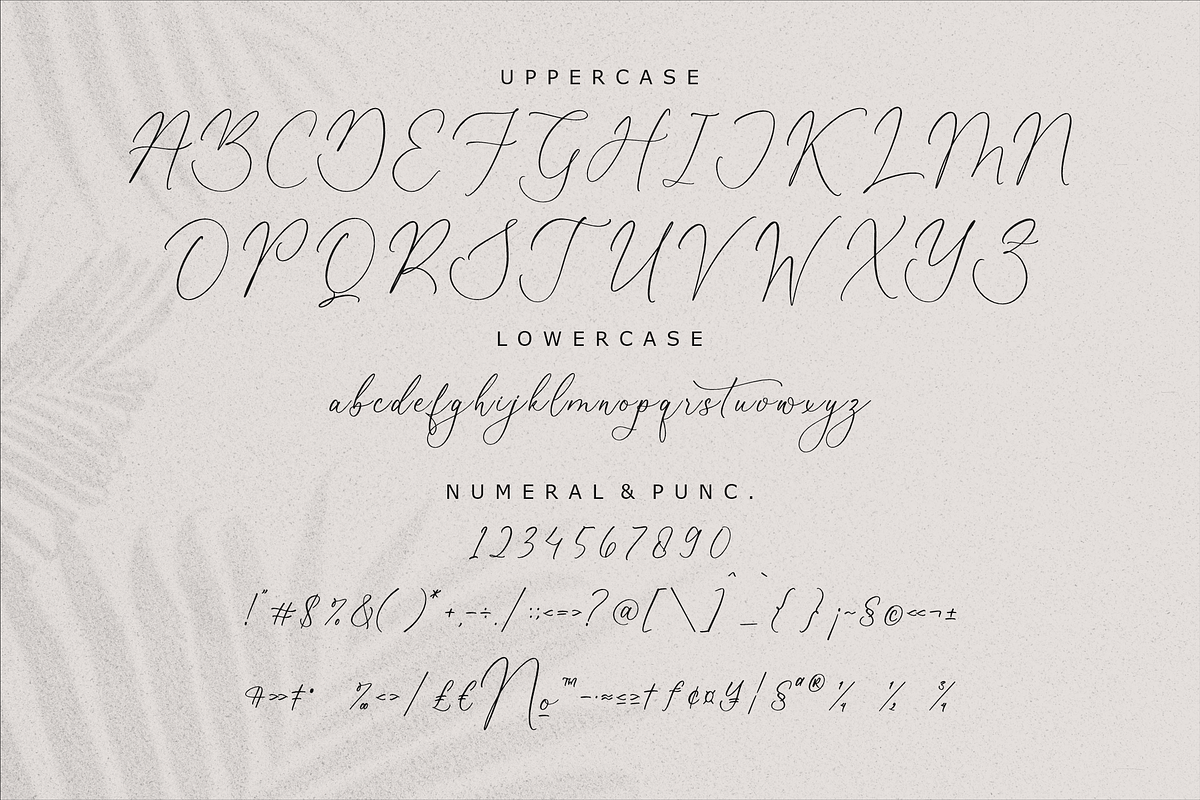 UPPERCASE
ABCDEFGHIJKLMN
OPQRSTUVWXYZ
LOWERCASE
abcdefghijklmnopqrstuvwxyz
NUMERAL & PUNC.
1234567890
!"#$%&( )*+,-÷./:;<=>?@[\]^_`{ }¡~§©«¬±
»‡• ‰<>/££€№™-·≈≤≥†ƒ¢¤¥¦§ª®¼ ½ ¾